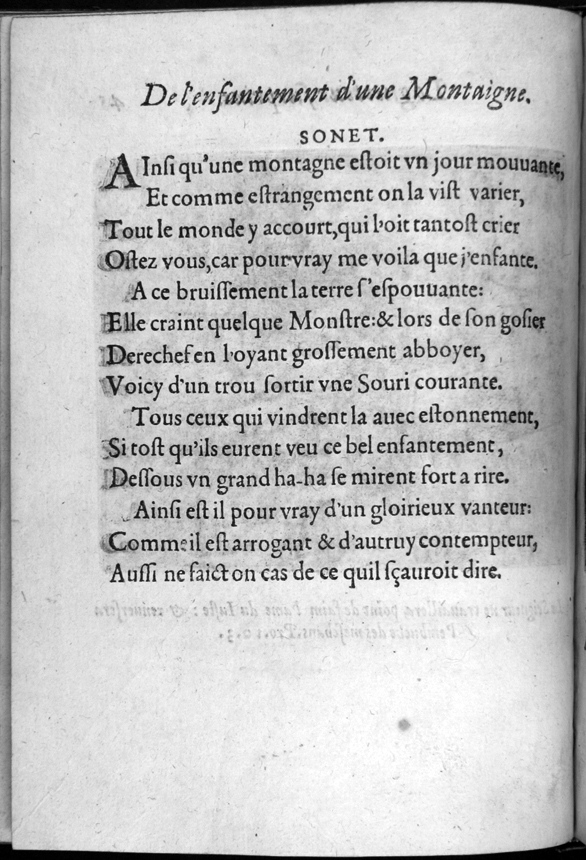 De l'enfantement d'une Montaigne.
SONET.
AInsi qu'une montagne estoit vn jour mouuante,
Et comme estrangement on la vist varier,
Tout le monde y accourt, qui l'oit tantost crier
Ostez vous, car pour vray me voila que j'enfante.
A ce bruissement la terre s'espouuante:
Elle craint quelque Monstre: & lors de son gosier
Derechef en l'oyant grossement abboyer,
Voicy d'un trou sortir vne Souri courante.
Tous ceux qui vindrent la auec estonnement,
Si tost qu'ils eurent veu ce bel enfantement,
Dessous vn grand ha-ha se mirent fort a rire.
Ainsi est il pour vray d'un gloirieux vanteur:
Comme il est arrogant & d'autruy contempteur,
Aussi ne faict on cas de ce quil sçauroit dire.